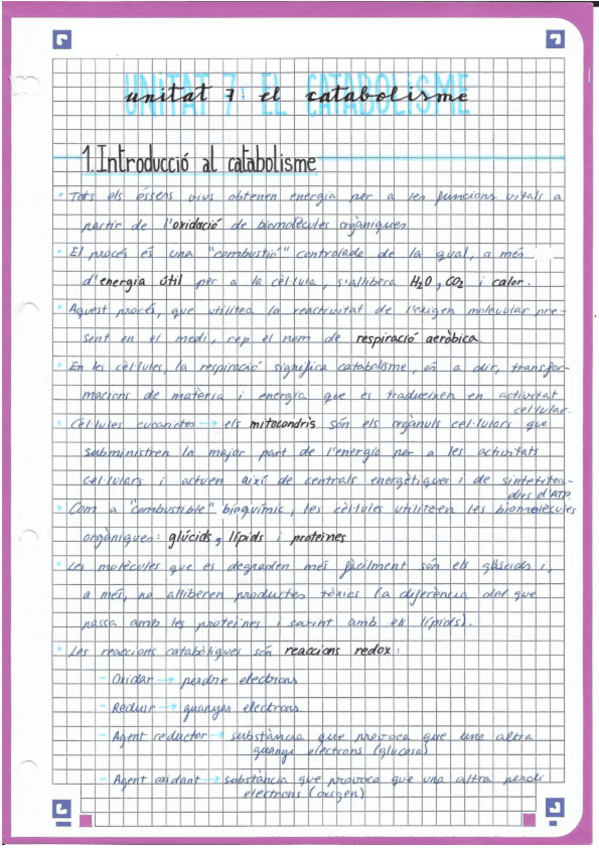 UNITAT 7: EL CATABOLISME
unitat 7: el catabolisme
1. Introducció al catabolisme
• Tots els éssers vius obtenen energia per a les funcions vitals a
partir de l'oxidació de biomolècules orgàniques
• El procés és una "combustió" controlada de la qual, a més
d'energia útil per a la cèl·lula, s'allibera H₂O, CO₂ i calor.
• Aquest procés, que utilitza la reactivitat de l'oxigen molecular pre-
sent en el medi, rep el nom de respiració aeròbica.
• En les cèl·lules, la respiració significa catabolisme, és a dir, transfor-
macions de matèria i energia que es tradueixen en activitat
cel·lular.
• Cèl·lules eucariotes → els mitocondris són els orgànuls cel·lulars que
subministren la major part de l'energia per a les activitats
cel·lulars i actuen així de centrals energètiques i de sintetitza-
dors d'ATP.
• Com a "combustible" bioquímic, les cèl·lules utilitzen les biomolècules
orgàniques: glúcids, lípids i proteïnes
• Les molècules que es degraden més fàcilment són els glúcids i,
a més, no alliberen productes tòxics (a diferència del que
passa amb les proteïnes i sovint amb els lípids).
• Les reaccions catabòliques són reaccions redox:
- Oxidar → perdre electrons
- Reduir → guanyar electrons
- Agent reductor → substància que provoca que una altra
guanyi electrons (glucosa)
- Agent oxidant → substància que provoca que una altra perdi
electrons (oxigen)